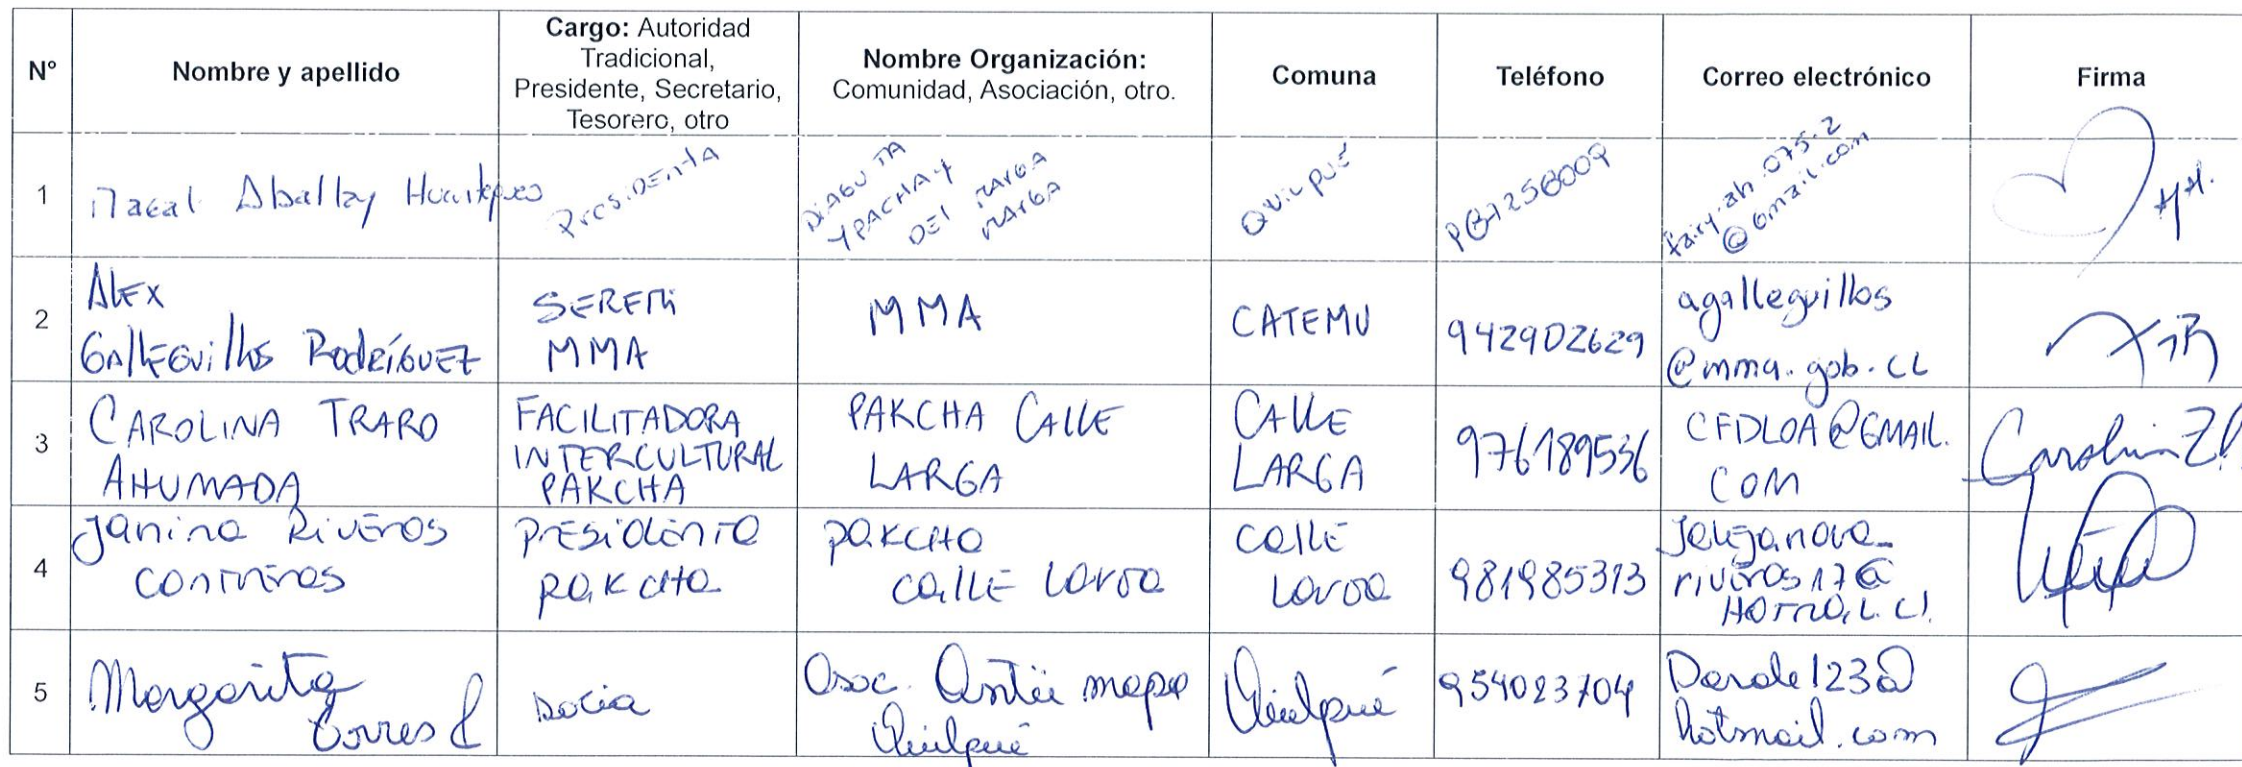 N°
Nombre y apellido
Cargo: Autoridad
Tradicional,
Presidente, Secretario,
Tesorero, otro
Nombre Organización:
Comunidad, Asociación, otro.
Comuna
Teléfono
Correo electrónico
Firma
1
Aballay
Presidenta
DIAGUITA
YPACHAY
DEL MARGA
MARGA
QUILPUÉ
@Gmail.com
2
ALEX
GAllEGuillos RodríGUEZ
SEREMi
MMA
MMA
CATEMU
942902629
agalleguillos
@mma.gob.CL
3
CAROLINA TRARO
AHUMADA
FACILITADORA
INTERCULTURAL
PAKCHA
PAKCHA CALLE
LARGA
CALLE
LARGA
976189536
CFDLOA@GMAIL.
COM
Carolina
4
Janina RivEros
contreras
PrESidenta
PaKcHa
PaKcHa
callE Larga
callE
Larga
981985313
riveros17@
HOTmail.cl
5
Margarita
Torres
socia
Asoc. Antü mapu
Quilpué
Quilpué
954023704
Darale123@
hotmail.com